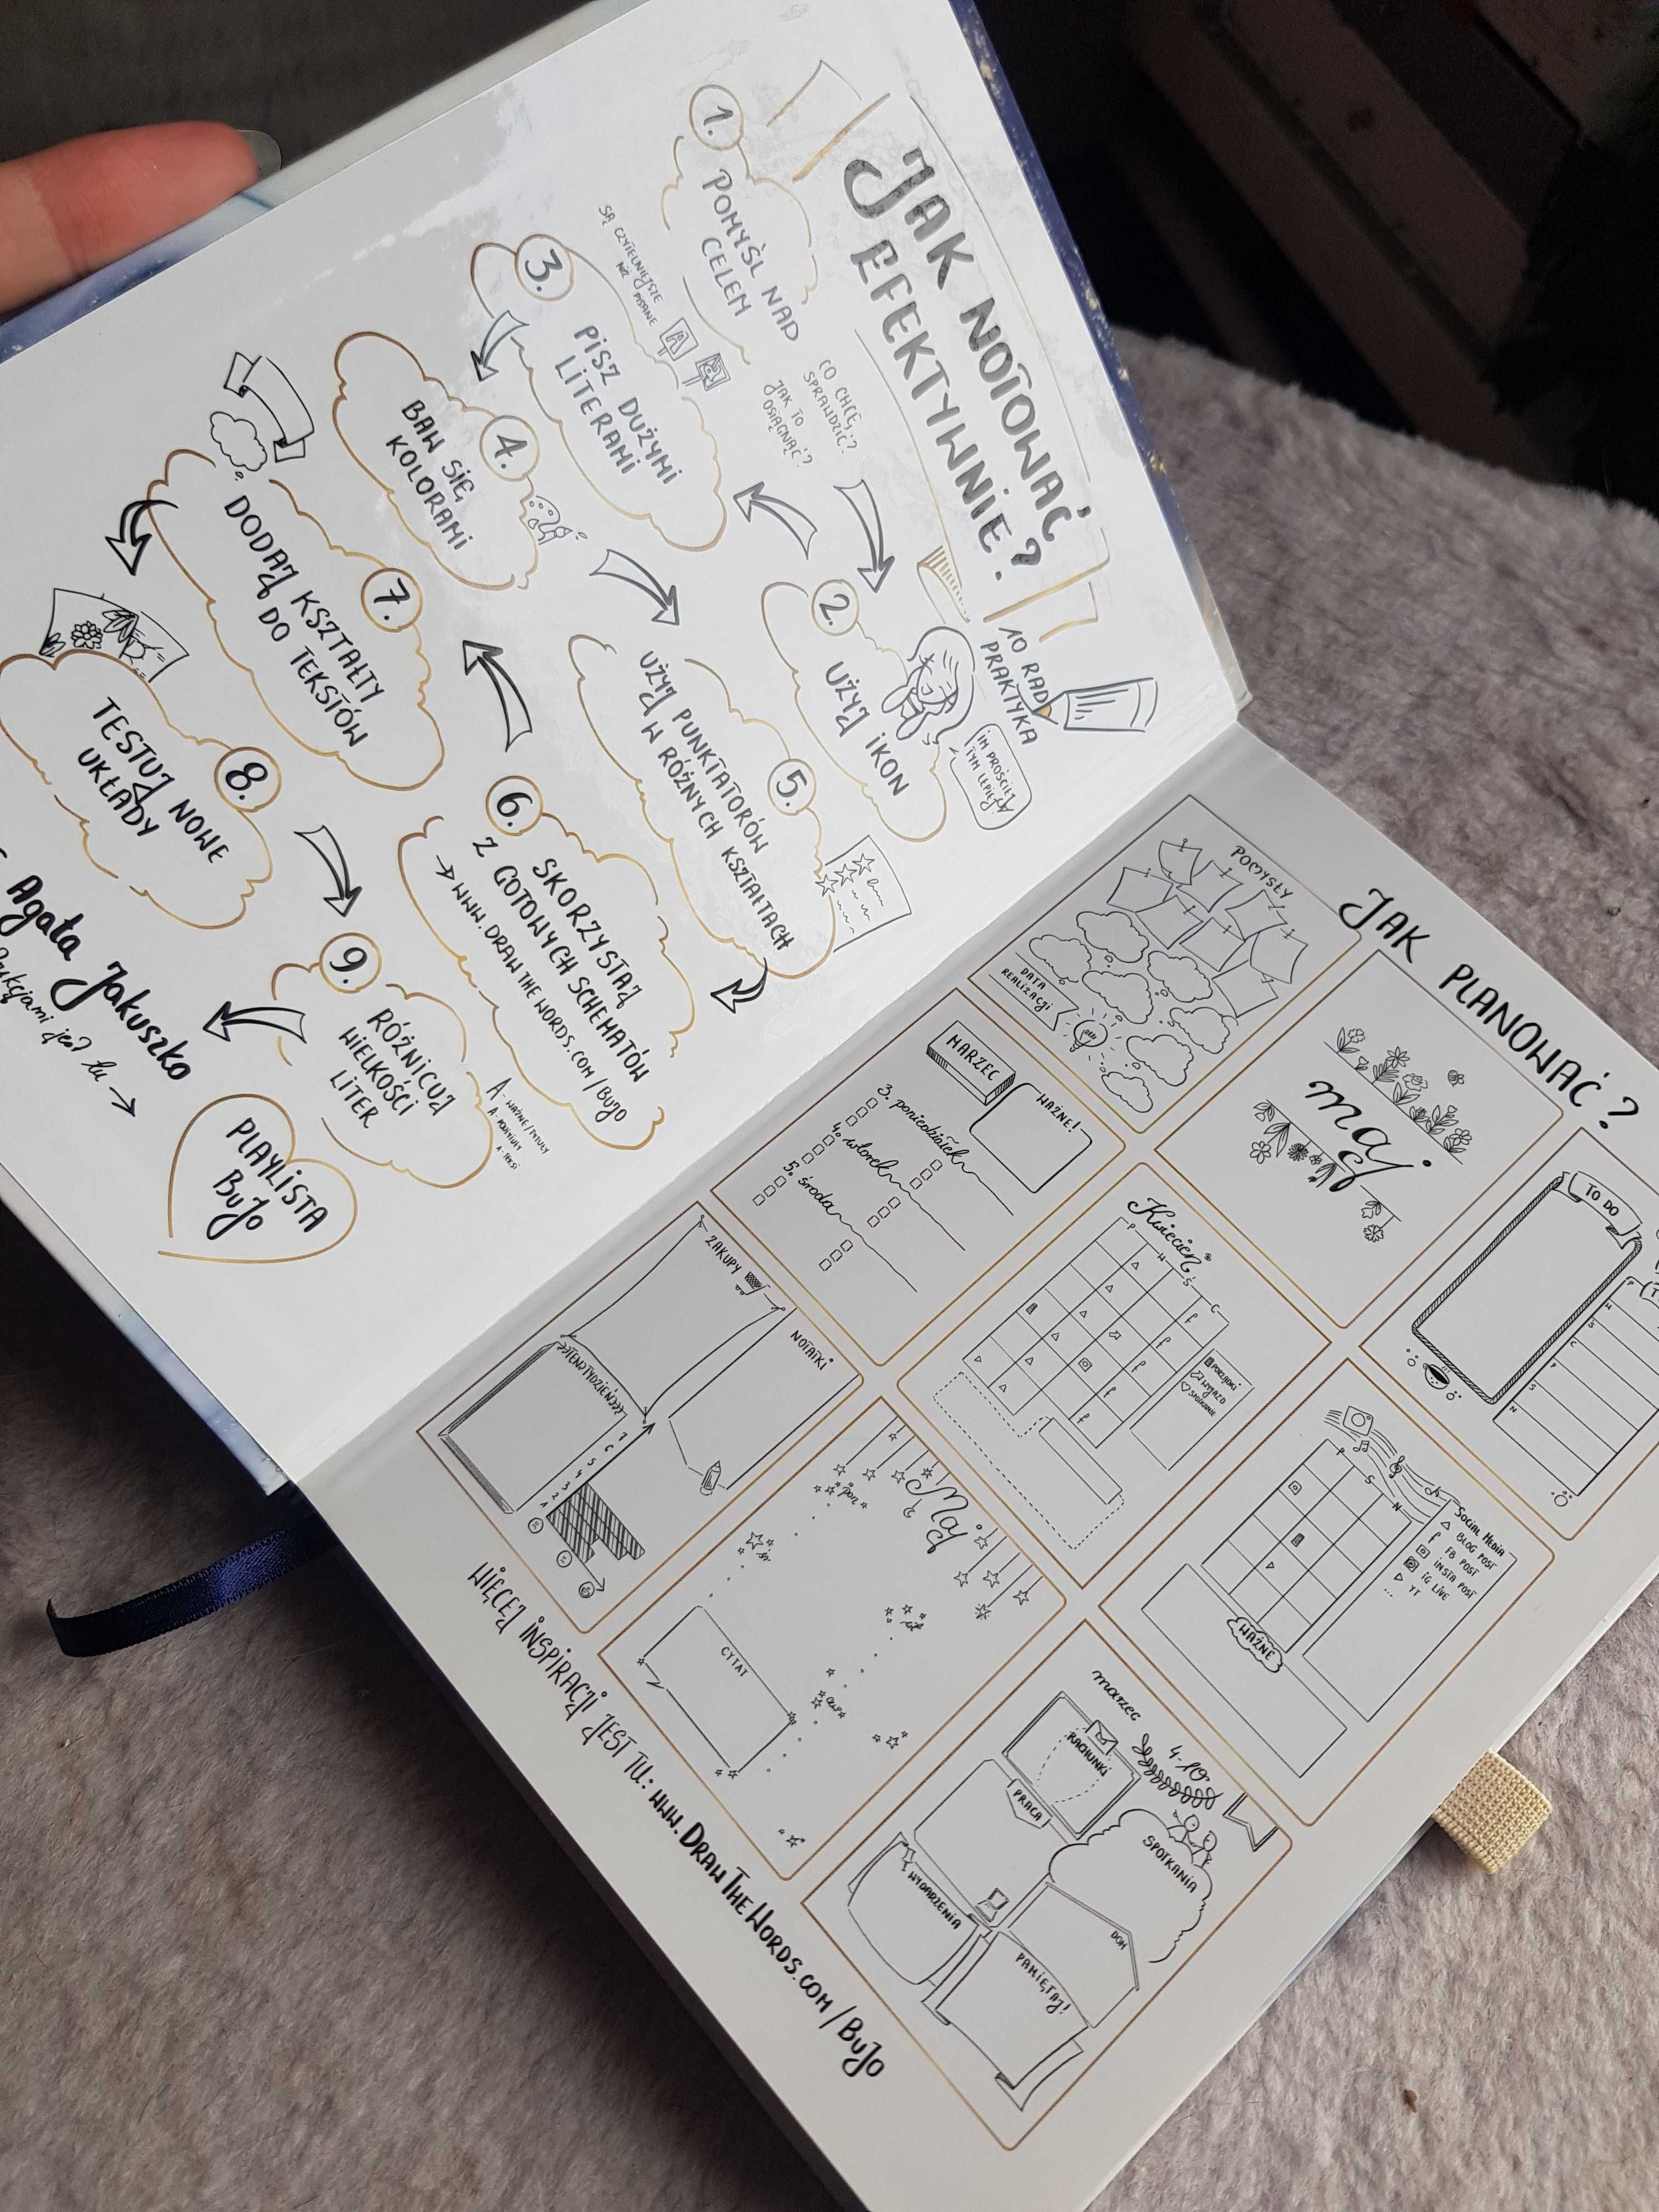 JAK NOTOWAĆ
EFEKTYWNIE?
10 RAD
PRAKTYKA
IM PROŚCIEJ
TYM LEPIEJ
1.
POMYŚL NAD
CELEM
CO CHCĘ
SPRAWDZIĆ?
JAK TO
OSIĄGNĄĆ?
2.
UŻYJ IKON
3.
PISZ DUŻYMI
LITERAMI
SĄ CZYTELNIEJSZE
NIŻ PISANE
A
4.
BAW SIĘ
KOLORAMI
5.
UŻYJ PUNKTATORÓW
UŻYJ W RÓŻNYCH KSZTAŁTACH
6.
SKORZYSTAJ
Z GOTOWYCH SCHEMATÓW
→ WWW.DRAWTHEWORDS.COM/BUJO
7.
DODAJ KSZTAŁTY
DO TEKSTÓW
8.
TESTUJ NOWE
UKŁADY
9.
RÓŻNICUJ
WIELKOŚCI
LITER
A - WAŻNE/TYTUŁY
A - PODTYTUŁY
A - TEKST
Agata Jakuszko
jest tu →
PLAYLISTA
BUJO
JAK PLANOWAĆ?
POMYSŁY
DATA
REALIZACJI
maj
TO DO
P
W
Ś
C
P
S
N
MARZEC
WAŻNE!
3. poniedziałek
4. wtorek
5. środa
Kwiecień
P W Ś C
PORZĄDKI
WYJAZD
SPOTKANIE
P S N
SOCIAL MEDIA
BLOG POST
f FB POST
INSTA POST
IG LIVE
YT
...
WAŻNE
ZAKUPY
NOTATKI
#TENTYDZIEŃ
7
6
5
4
3
2
1
Maj
pon
śr
pt
CYTAT
marzec
4-10
RACHUNKI
PRACA
SPOTKANIA
WYDARZENIA
DOM
PAMIĘTAJ!
WIĘCEJ INSPIRACJI JEST TU: WWW.DRAWTHEWORDS.COM/BUJO